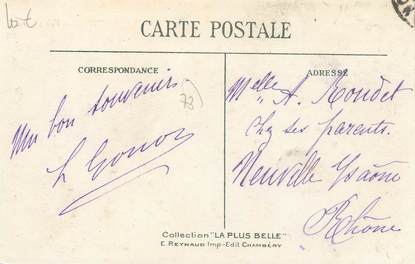 CARTE POSTALE
CORRESPONDANCE
ADRESSE
Un bon souvenir
73
Melle A. Roudet
Chez ses parents.
Neuville s/Saône
Rhône
Collection "LA PLUS BELLE"
E. REYNAUD Imp-Edit CHAMBÉRY